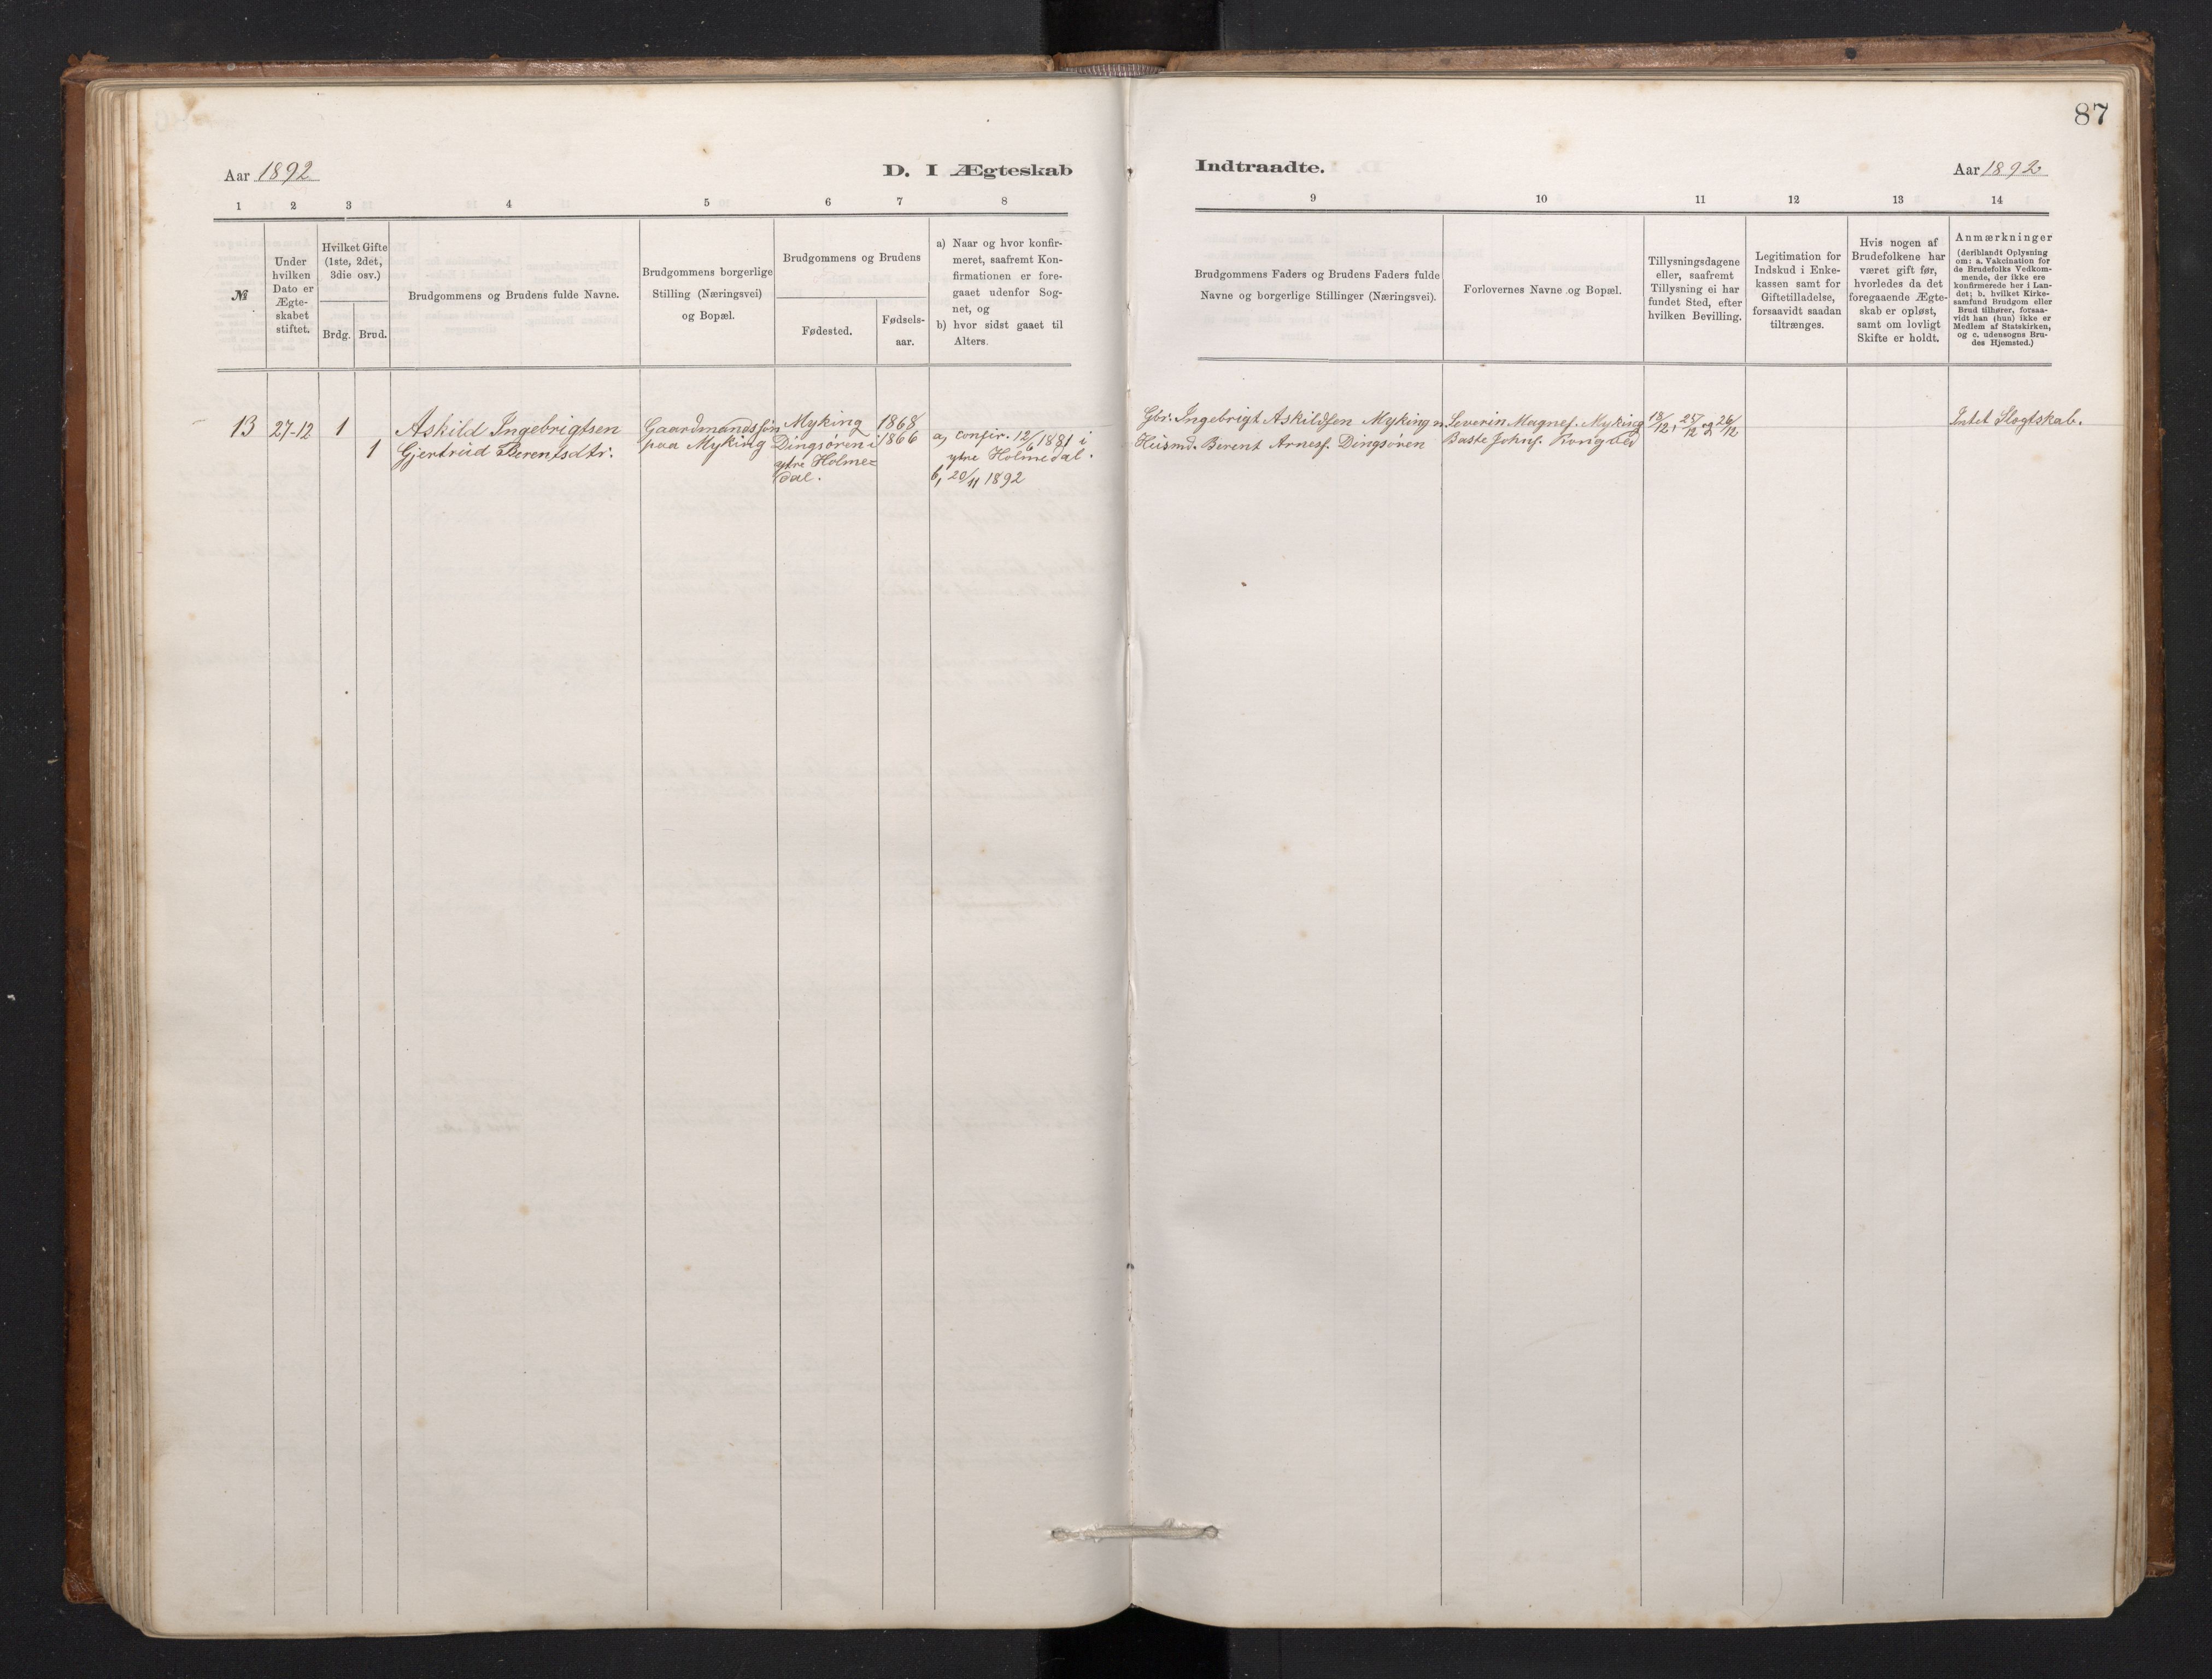 87
Aar 1892
D. I Ægteskab
Indtraadte.
Aar 1892
1
2
3
4
5
6
7
8
9
10
11
12
13
14
№
Under
hvilken
Dato er
Ægte-
skabet
stiftet.
Hvilket Gifte
(1ste, 2det,
3die osv.)
Brdg.
Brud.
Brudgommens og Brudens fulde Navne.
Brudgommens borgerlige
Stilling (Næringsvei)
og Bopæl.
Brudgommens og Brudens
Fødested.
Fødsels-
aar.
a) Naar og hvor konfir-
meret, saafremt Kon-
firmationen er fore-
gaaet udenfor Sog-
net, og
b) hvor sidst gaaet til
Alters.
Brudgommens Faders og Brudens Faders fulde
Navne og borgerlige Stillinger (Næringsvei).
Forlovernes Navne og Bopæl.
Tillysningsdagene
eller, saafremt
Tillysning ei har
fundet Sted, efter
hvilken Bevilling.
Legitimation for
Indskud i Enke-
kassen samt for
Giftetilladelse,
forsaavidt saadan
tiltrænges.
Hvis nogen af
Brudefolkene har
været gift før,
hvorledes da det
foregaaende Ægte-
skab er opløst,
samt om lovligt
Skifte er holdt.
Anmærkninger
(deriblandt Oplysning
om: a. Vakcination for
de Brudefolks Vedkom-
mende, der ikke ere
konfirmerede her i Lan-
det; b. hvilket Kirke-
samfund Brudgom eller
Brud tilhører, forsaa-
vidt han (hun) ikke er
Medlem af Statskirken,
og c. udensogns Bru-
des Hjemsted.)
13
27-12
1
1
Askild Ingebrigtsen
Gjertrud Berentsdtr.
Gaardmandssøn
paa Myking
Myking
Dingsøren i
ytre Holme=
dal.
1868
1866
a, confir. 12/6 1881 i
ytre Holmedal.
b, 20/11 1892
Gbr. Ingebrigt Askildsen Myking
Husmd. Berent Arnes. Dingsøren
Severin Magnes. Myking
Baste Johns.
18/12, 25/12 og 26/12
Intet Slegtskab.